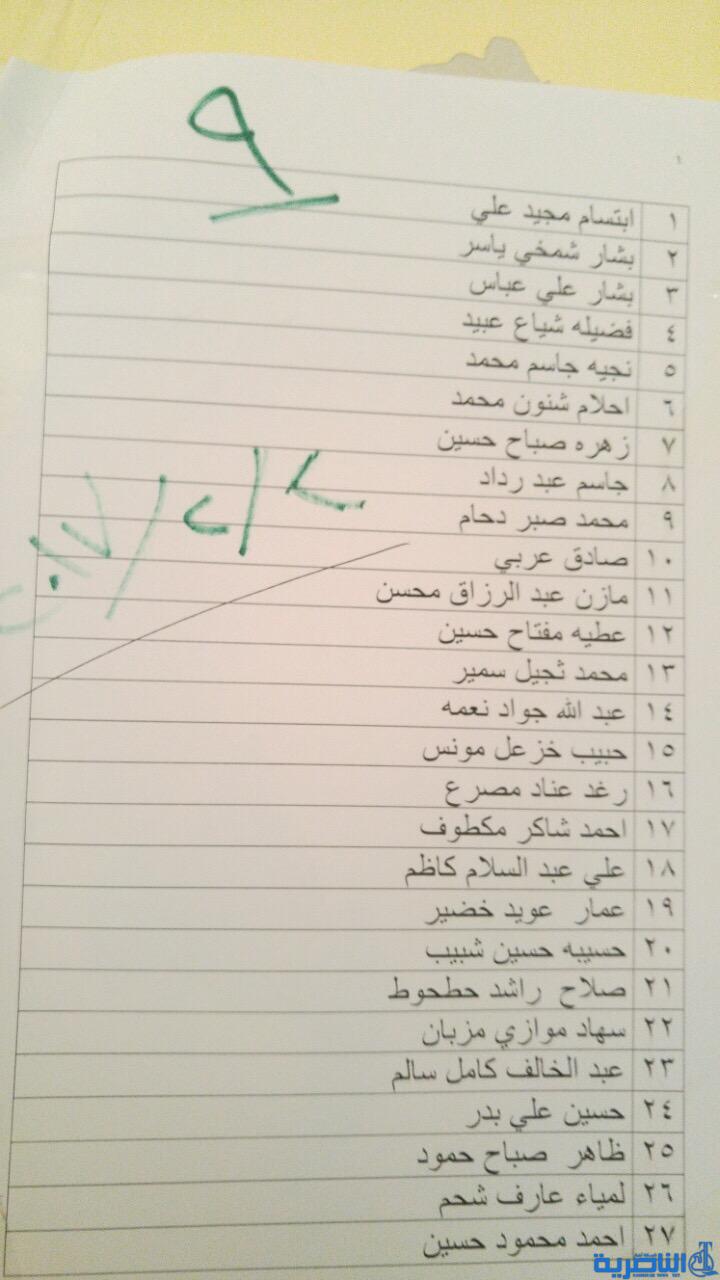 ٩
١
١ ابتسام مجيد علي
٢ بشار شمخي ياسر
٣ بشار علي عباس
٤ فضيله شياع عبيد
٥ نجيه جاسم محمد
٦ احلام شنون محمد
٧ زهره صباح حسين
٨ جاسم عبد رداد
٩ محمد صبر دحام
١٠ صادق عربي
١١ مازن عبد الرزاق محسن
١٢ عطيه مفتاح حسين
١٣ محمد ثجيل سمير
١٤ عبد الله جواد نعمه
١٥ حبيب خزعل مونس
١٦ رغد عناد مصرع
١٧ احمد شاكر مكطوف
١٨ علي عبد السلام كاظم
١٩ عمار عويد خضير
٢٠ حسيبه حسين شبيب
٢١ صلاح راشد حطحوط
٢٢ سهاد موازي مزبان
٢٣ عبد الخالف كامل سالم
٢٤ حسين علي بدر
٢٥ ظاهر صباح حمود
٢٦ لمياء عارف شحم
٢٧ احمد محمود حسين
الناصرية